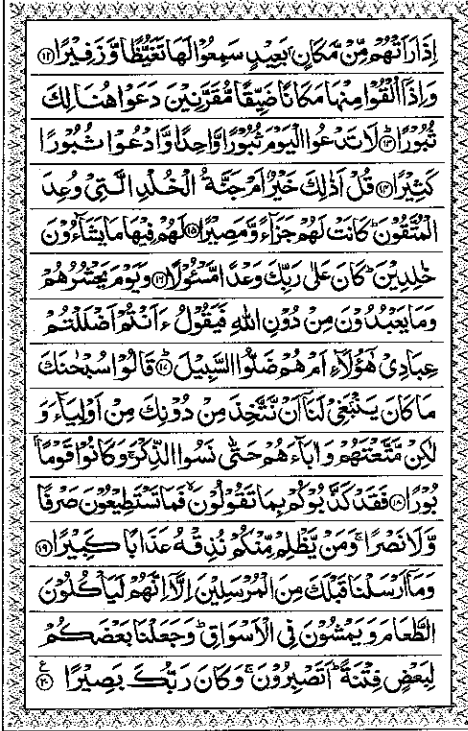 اِذَا رَاَتۡهُمۡ مِّنۡ مَّكَانٍۭ بَعِيۡدٍ سَمِعُوۡا لَهَا تَغَيُّظًا وَّزَفِيۡرًا ۝۱۲
وَاِذَاۤ اُلۡقُوۡا مِنۡهَا مَكَانًا ضَيِّقًا مُّقَرَّنِيۡنَ دَعَوۡا هُنَالِكَ
ثُبُوۡرًا ؕ۝۱۳ لَا تَدۡعُوا الۡيَوۡمَ ثُبُوۡرًا وَّاحِدًا وَّادۡعُوۡا ثُبُوۡرًا
كَثِيۡرًا ۝۱۴ قُلۡ اَذٰلِكَ خَيۡرٌ اَمۡ جَنَّةُ الۡخُلۡدِ الَّتِىۡ وُعِدَ
الۡمُتَّقُوۡنَ ؕ كَانَتۡ لَهُمۡ جَزَآءً وَّمَصِيۡرًا ۝۱۵ لَهُمۡ فِيۡهَا مَا يَشَآءُوۡنَ
خٰلِدِيۡنَ ؕ كَانَ عَلٰى رَبِّكَ وَعۡدًا مَّسۡئُوۡلًا ۝۱۶ وَيَوۡمَ يَحۡشُرُهُمۡ
وَمَا يَعۡبُدُوۡنَ مِنۡ دُوۡنِ اللّٰهِ فَيَقُوۡلُ ءَاَنۡتُمۡ اَضۡلَلۡتُمۡ
عِبَادِىۡ هٰٓؤُلَآءِ اَمۡ هُمۡ ضَلُّوا السَّبِيۡلَ ؕ۝۱۷ قَالُوۡا سُبۡحٰنَكَ
مَا كَانَ يَنۡۢبَغِىۡ لَنَاۤ اَنۡ نَّتَّخِذَ مِنۡ دُوۡنِكَ مِنۡ اَوۡلِيَآءَ وَ
لٰكِنۡ مَّتَّعۡتَهُمۡ وَاٰبَآءَهُمۡ حَتّٰى نَسُوا الذِّكۡرَ ۚ وَكَانُوۡا قَوۡمًۢا
بُوۡرًا ۝۱۸ فَقَدۡ كَذَّبُوۡكُمۡ بِمَا تَقُوۡلُوۡنَ ۙ فَمَا تَسۡتَطِيۡعُوۡنَ صَرۡفًا
وَّلَا نَصۡرًا ۚ وَمَنۡ يَّظۡلِمۡ مِّنۡكُمۡ نُذِقۡهُ عَذَابًا كَبِيۡرًا ۝۱۹
وَمَاۤ اَرۡسَلۡنَا قَبۡلَكَ مِنَ الۡمُرۡسَلِيۡنَ اِلَّاۤ اِنَّهُمۡ لَيَاۡكُلُوۡنَ
الطَّعَامَ وَيَمۡشُوۡنَ فِى الۡاَسۡوَاقِ ؕ وَجَعَلۡنَا بَعۡضَكُمۡ
لِبَعۡضٍ فِتۡنَةً ؕ اَتَصۡبِرُوۡنَ ۚ وَكَانَ رَبُّكَ بَصِيۡرًا ۝۲۰ ع